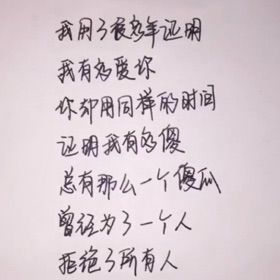 我用了很多年证明
我有多爱你
你却用同样的时间
证明我有多傻
总有那么一个傻瓜
曾经为了一个人
拒绝了所有人